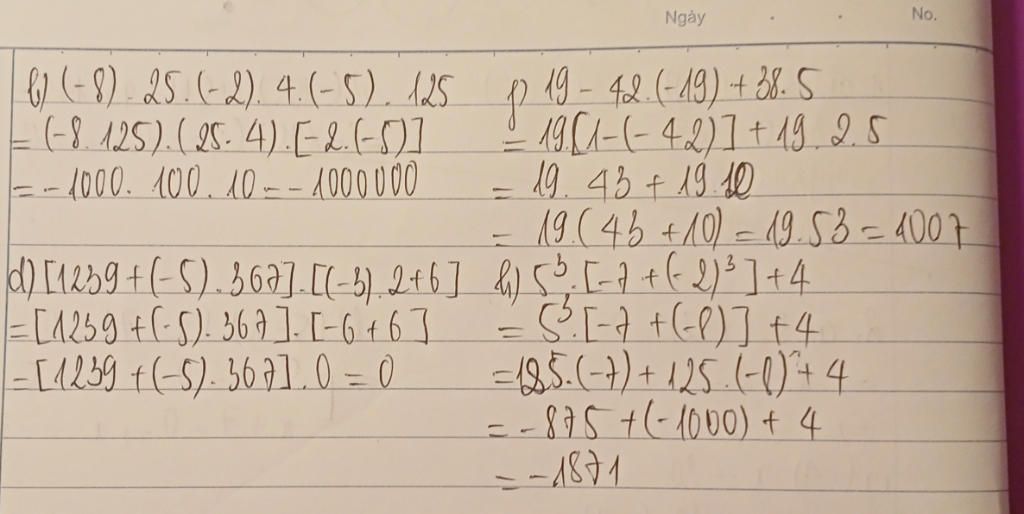 Ngày . . No.
b) (-8) . 25.(-2). 4.(-5) . 125
= (-8.125).(25.4).[-2.(-5)]
= -1000. 100. 10 = -1000000
d) [1239+(-5).367].[(-3).2+6]
= [1239+(-5).367].[-6+6]
= [1239+(-5).367].0 = 0
f) 19 - 42.(-19) + 38.5
= 19.[1-(-42)] + 19.2.5
= 19. 43 + 19.10
= 19.(43 +10) = 19.53 = 1007
h) 5³.[-7 + (-2)³] + 4
= 5³.[-7 + (-8)] + 4
= 125.(-7) + 125.(-8) + 4
= -875 + (-1000) + 4
= -1871